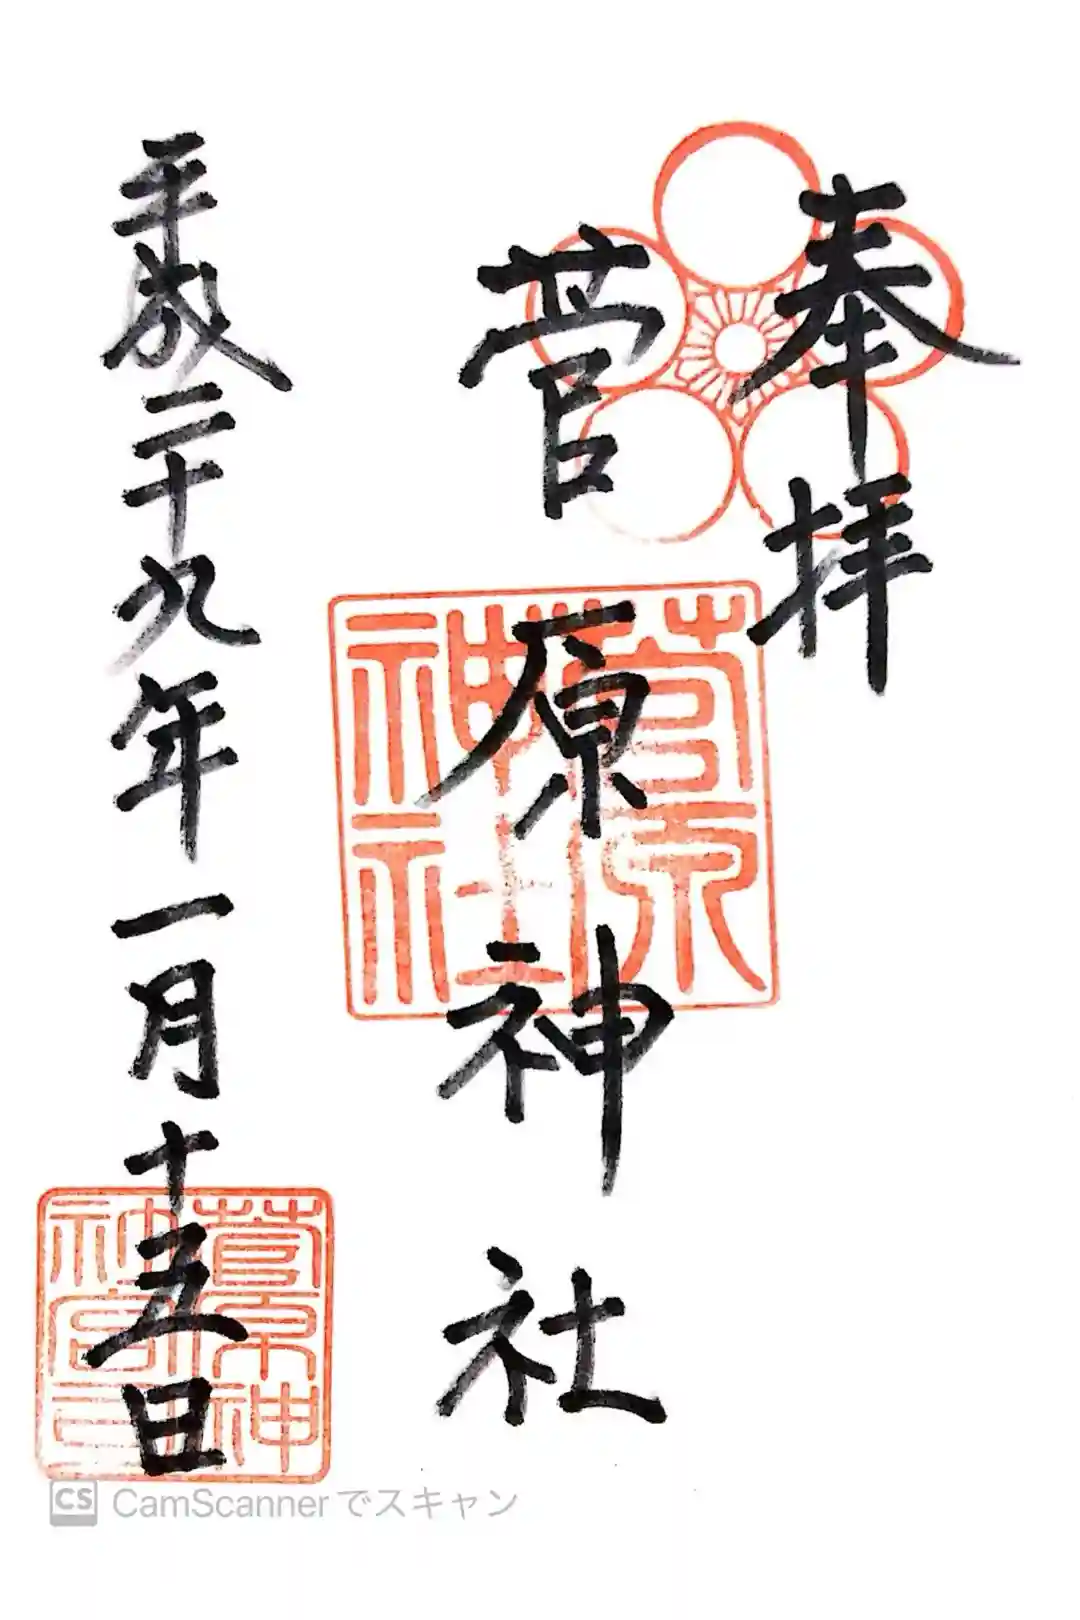 奉拝
菅原神社
菅原神社
平成二十九年一月十五日
CS CamScannerでスキャン